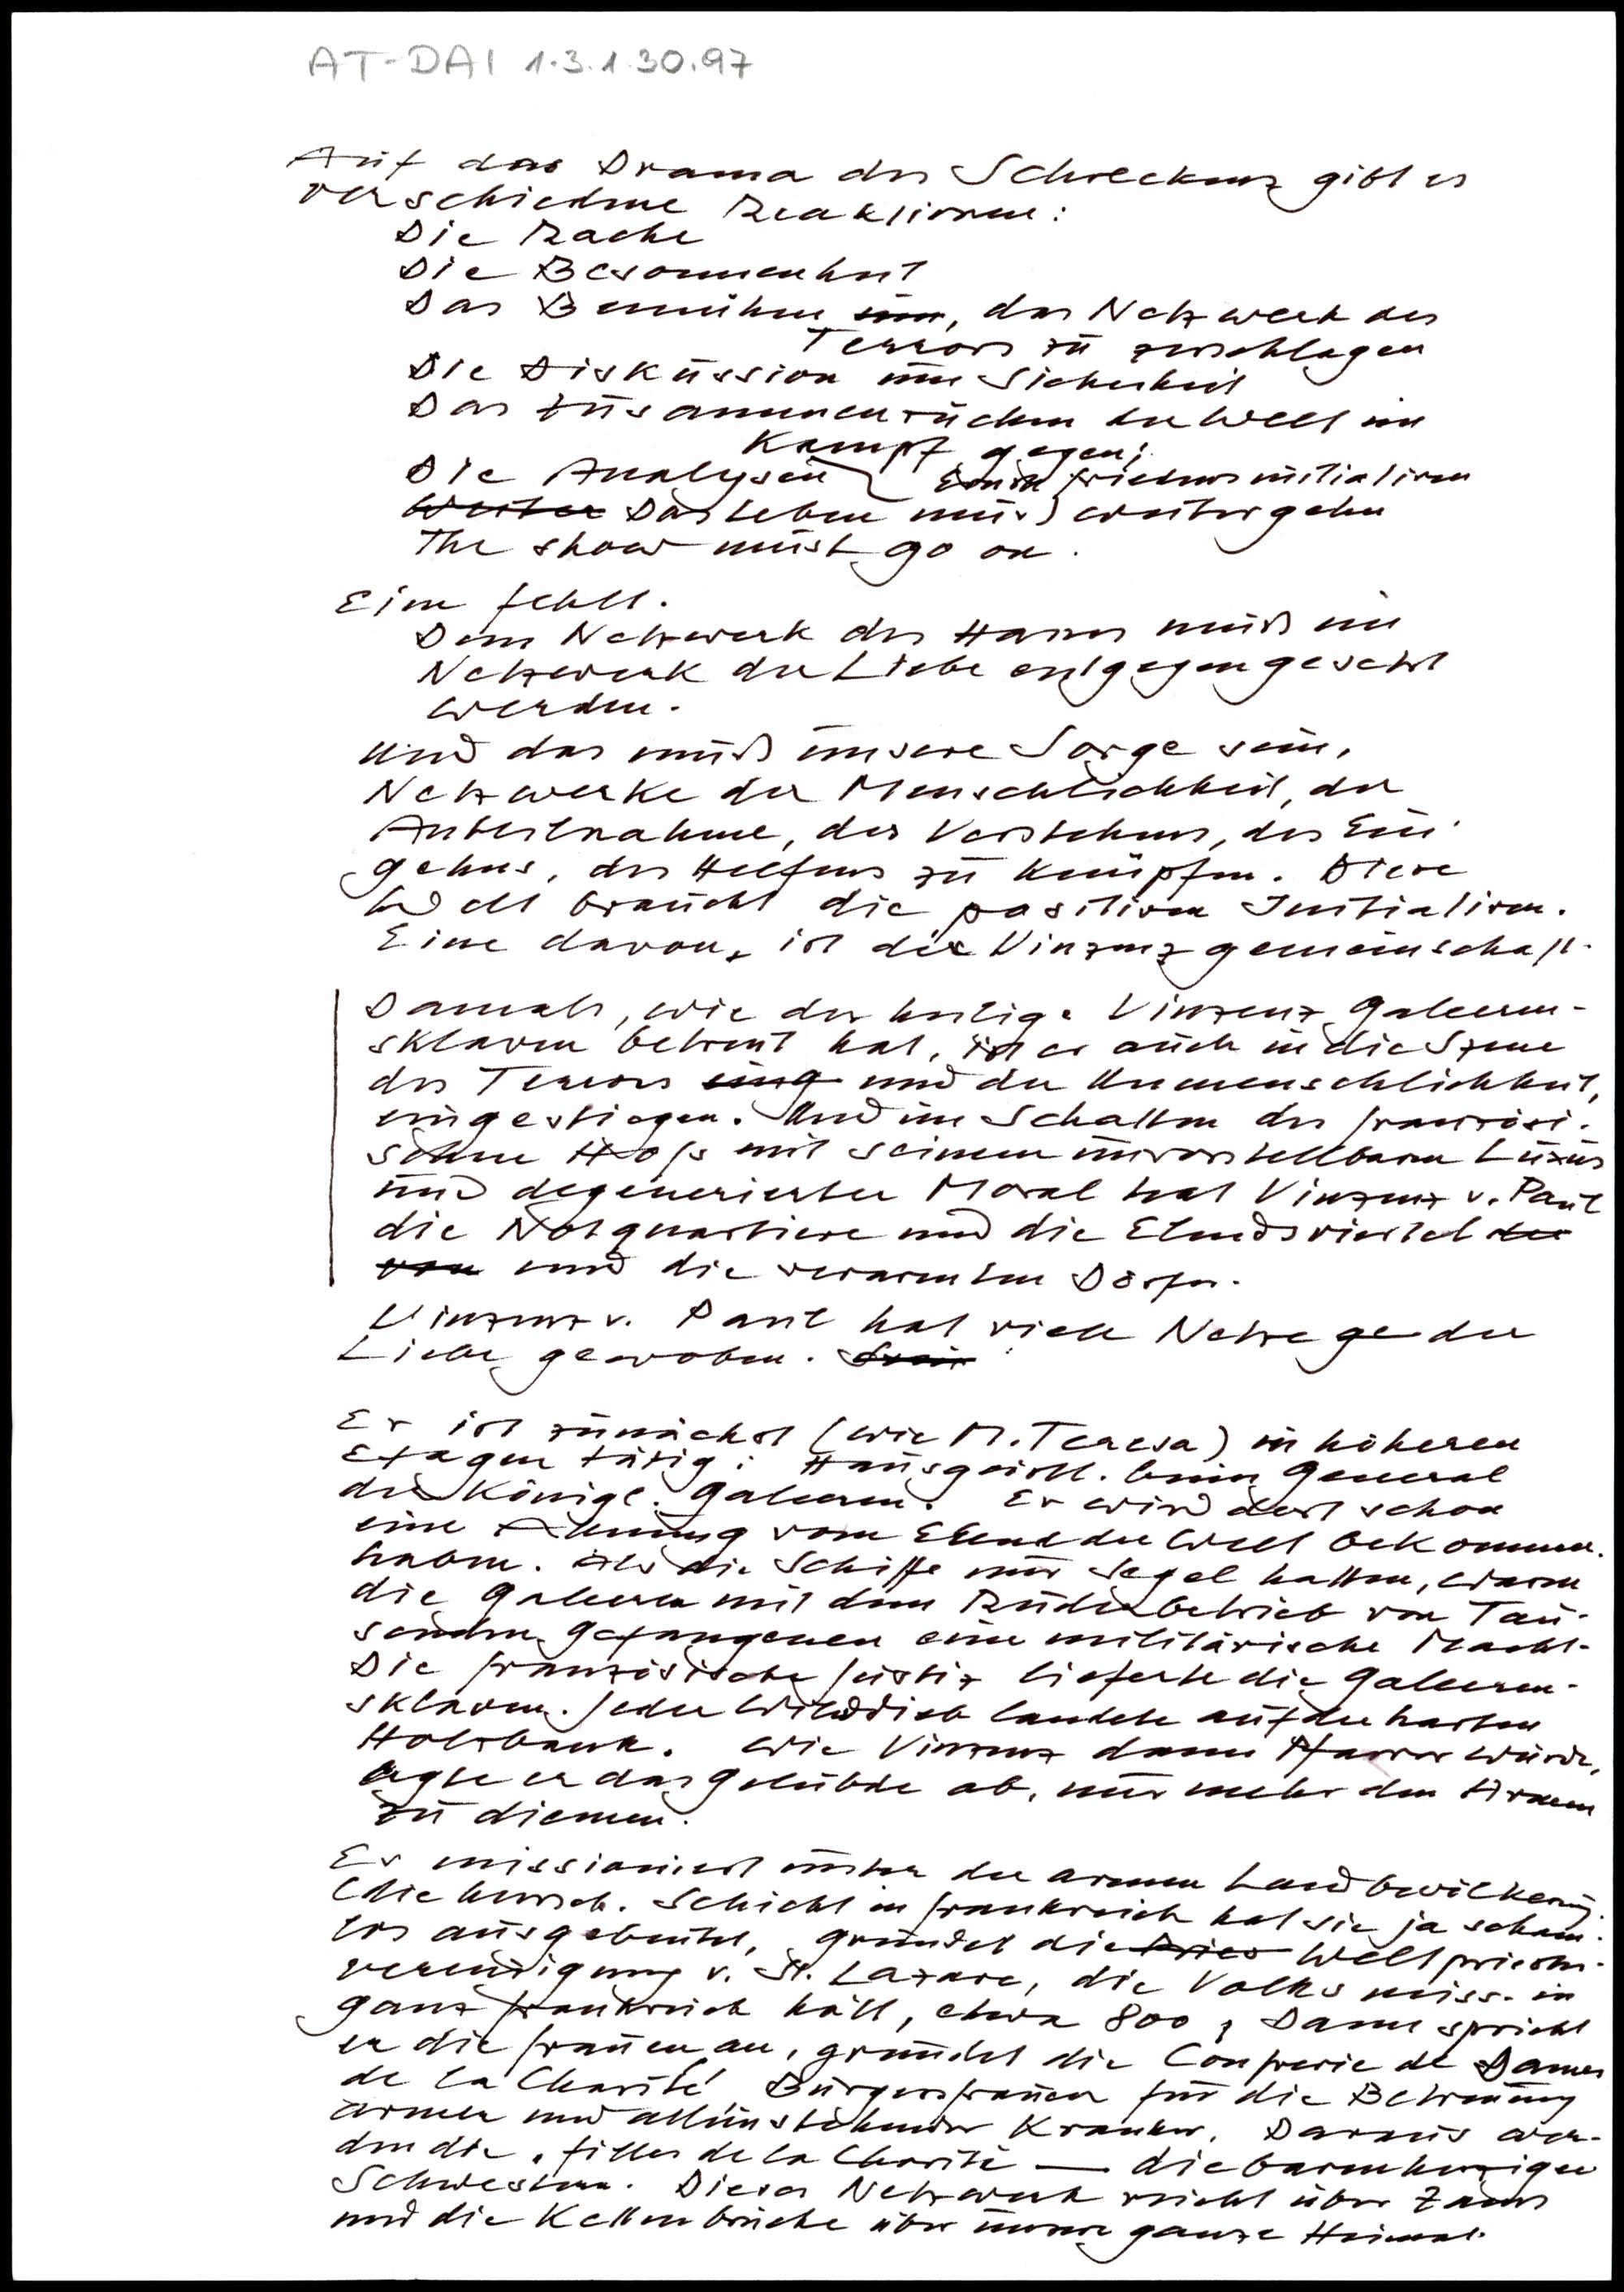 AT-DAI 1.3.1.30.97
Auf das Drama des Schreckens gibt es
verschiedene Reaktionen:
Die Rache
Die Besonnenheit
Das Bemühen um, das Netzwerk des
Terrors zu zerschlagen
Die Diskussion um Sicherheit
Das Zusammenrücken der Welt im
Kampf gegen;
Die Analysen Friedensinitiativen
Weiter Das Leben muss weitergehen
The show must go on.
Eine fehlt.
Dem Netzwerk des Hasses muß ein
Netzwerk der Liebe entgegengesetzt
werden.
Und das muß unsere Sorge sein,
Netzwerke der Menschlichkeit, der
Anteilnahme, des Verstehens, des Ein-
gehens, des Helfens zu knüpfen. Diese
Welt braucht die positiven Initiativen.
Eine davon, ist die Vinzenzgemeinschaft.
Damals, wie der heilige Vinzenz Galeeren-
sklaven betreut hat, ist er auch in die Szene
des Terrors eing und der Unmenschlichkeit,
eingestiegen. Und im Schatten des französi-
schen Hofs mit seinem unvorstellbaren Luxus
und degenerierter Moral hat Vinzenz v. Paul
die Notquartiere und die Elendsviertel der
von und die verarmten Dörfer.
Vinzenz v. Paul hat viele Netze ge der
Liebe gewoben.
Er ist zunächst (wie M. Teresa) in höheren
Etagen tätig: Hausgeistl. beim General
der Königl. Galeeren. Er wird dort schon
eine Ahnung vom Elend der Welt bekommen
haben. Als die Schiffe nur Segel hatten, waren
die Galeeren mit dem Ruderbetrieb von Tau-
senden Gefangenen eine militärische Macht.
Die französische Justiz lieferte die Galeeren-
sklaven. Jeder Wilddieb landete auf der harten
Holzbank. Wie Vinzenz dann Pfarrer wurde,
legte er das Gelübde ab, nur mehr den Armen
zu dienen.
Er missioniert unter der armen Landbevölkerung
(die herrsch. Schicht in Frankreich hat sie ja scham-
los ausgebeutet, gründet die Pries Weltpriester-
vereinigung v. St. Lazare, die Volksmiss. in
ganz Frankreich hält, etwa 800, Dann spricht
er die Frauen an, gründet die Confrerie de Dames
de la Charité Bürgersfrauen für die Betreuung
armer und alleinstehender Kranker. Daraus wer-
den die "filles de la Charité — die barmherzigen
Schwestern. Dieses Netzwerk reicht über Zams
und die Kettenbrücke über unsere ganze Heimat.